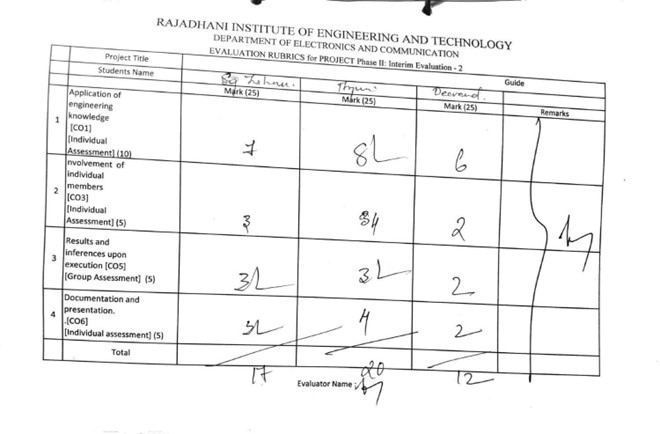 RAJADHANI INSTITUTE OF ENGINEERING AND TECHNOLOGY
DEPARTMENT OF ELECTRONICS AND COMMUNICATION
EVALUATION RUBRICS for PROJECT Phase II: Interim Evaluation - 2
Project Title
Guide
Students Name
Mark (25)
Mark (25)
Mark (25)
Remarks
1
Application of
engineering
knowledge
[CO1]
[Individual
Assessment] (10)
7
8
6
2
nvolvement of
individual
members
[CO3]
[Individual
Assessment] (5)
3
4
2
3
Results and
inferences upon
execution [CO5]
[Group Assessment] (5)
3
3
2
4
Documentation and
presentation.
.[CO6]
[Individual assessment] (5)
3
4
2
Total
17
20
12
Evaluator Name :